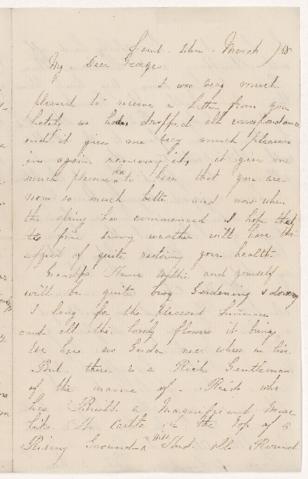 March /58
My Dear George
I was very much
pleased to receive a letter from you
lately we had dropped all correspondance
and it gives me very much pleasure
in again renewing it, it gives me
much pleasure to hear that you are
now so much better and now when
the spring has commenced I hope that
the fine spring weather will have the
effect of quite restoring your health.
and yourself
will be quite busy Gardening &
I long for the pleasant Summer
and all the lovely flowers it brings
We have no Garden here where we live
But there is a Rich Gentleman
of the name of Reid who
has Build a Magnificient House
like a Castle on the top of a
Rising Ground Hill And all Round